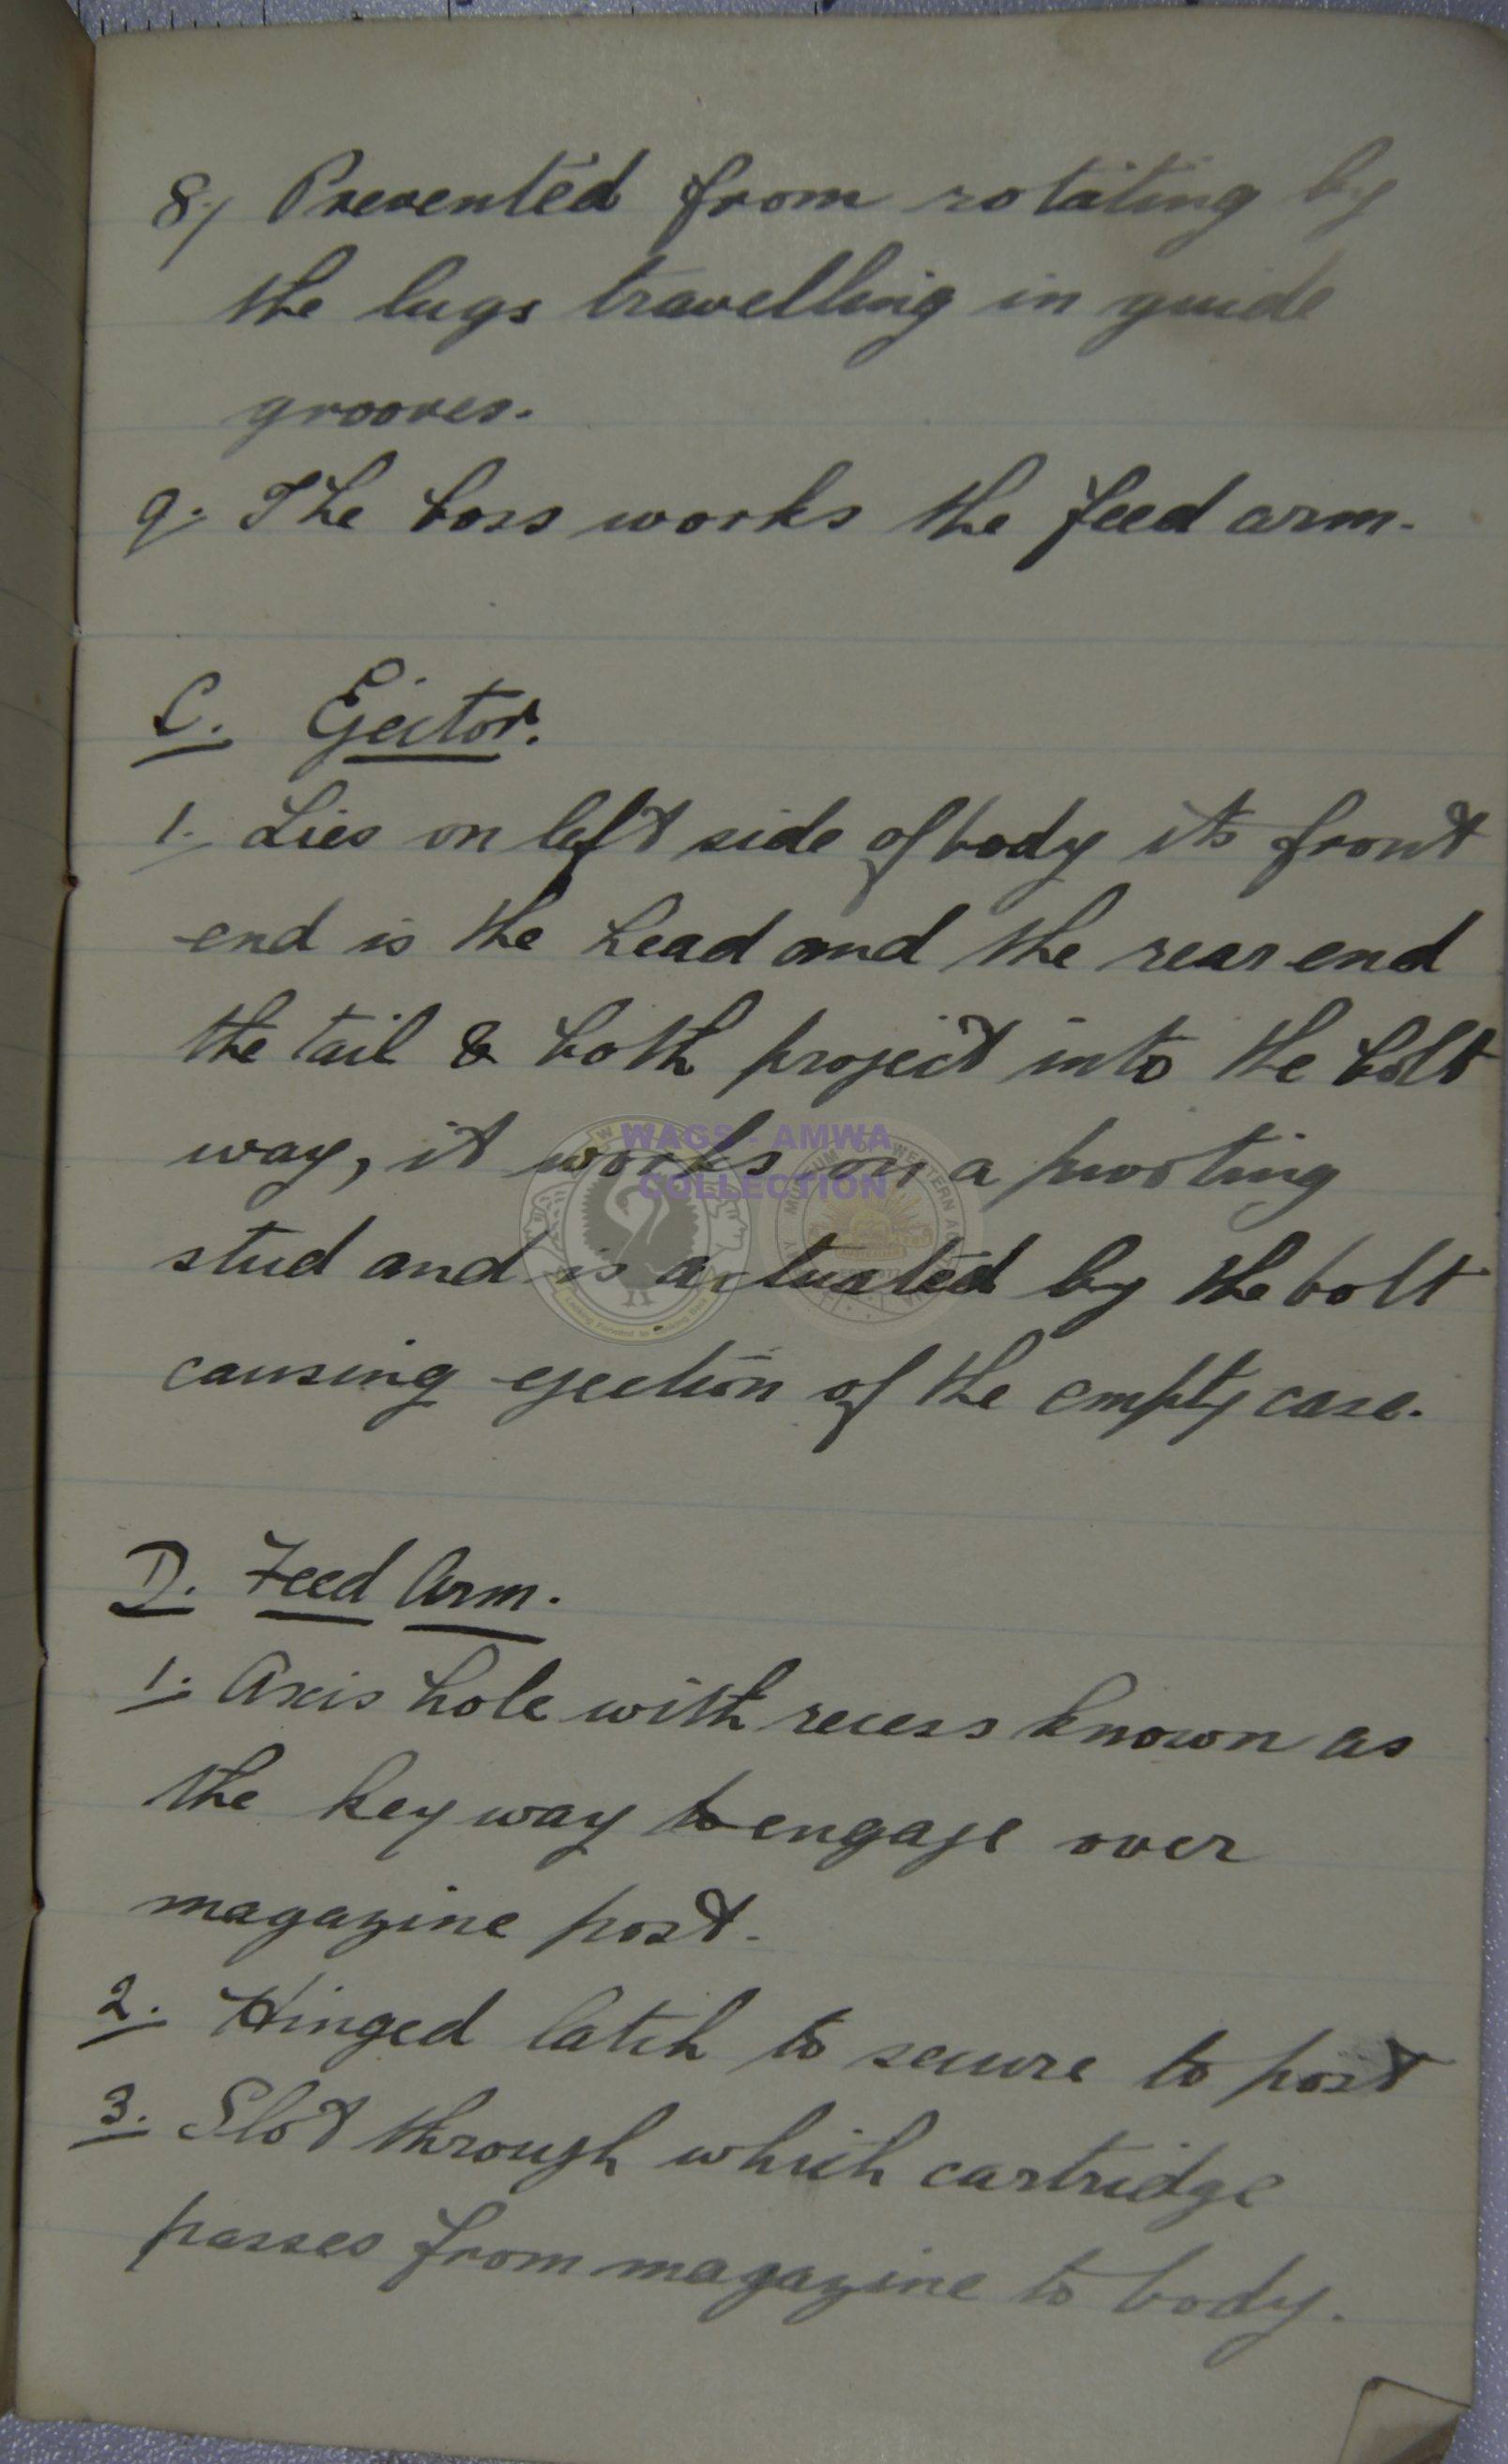 8, Prevented from rotating by
the lugs travelling in guide
grooves.
9. The boss works the feed arm.
C. Ejector.
1. Lies on left side of body its front
end is the head and the rear end
the tail & both project into the bolt
way, it works on a pivoting
WAGS - AMWA
COLLECTION
stud and is actuated by the bolt
causing ejection of the empty case.
D. Feed Arm.
1. Axis hole with recess known as
the key way to engage over
magazine post.
2. Hinged latch to secure to post
3. Slot through which cartridge
passes from magazine to body.